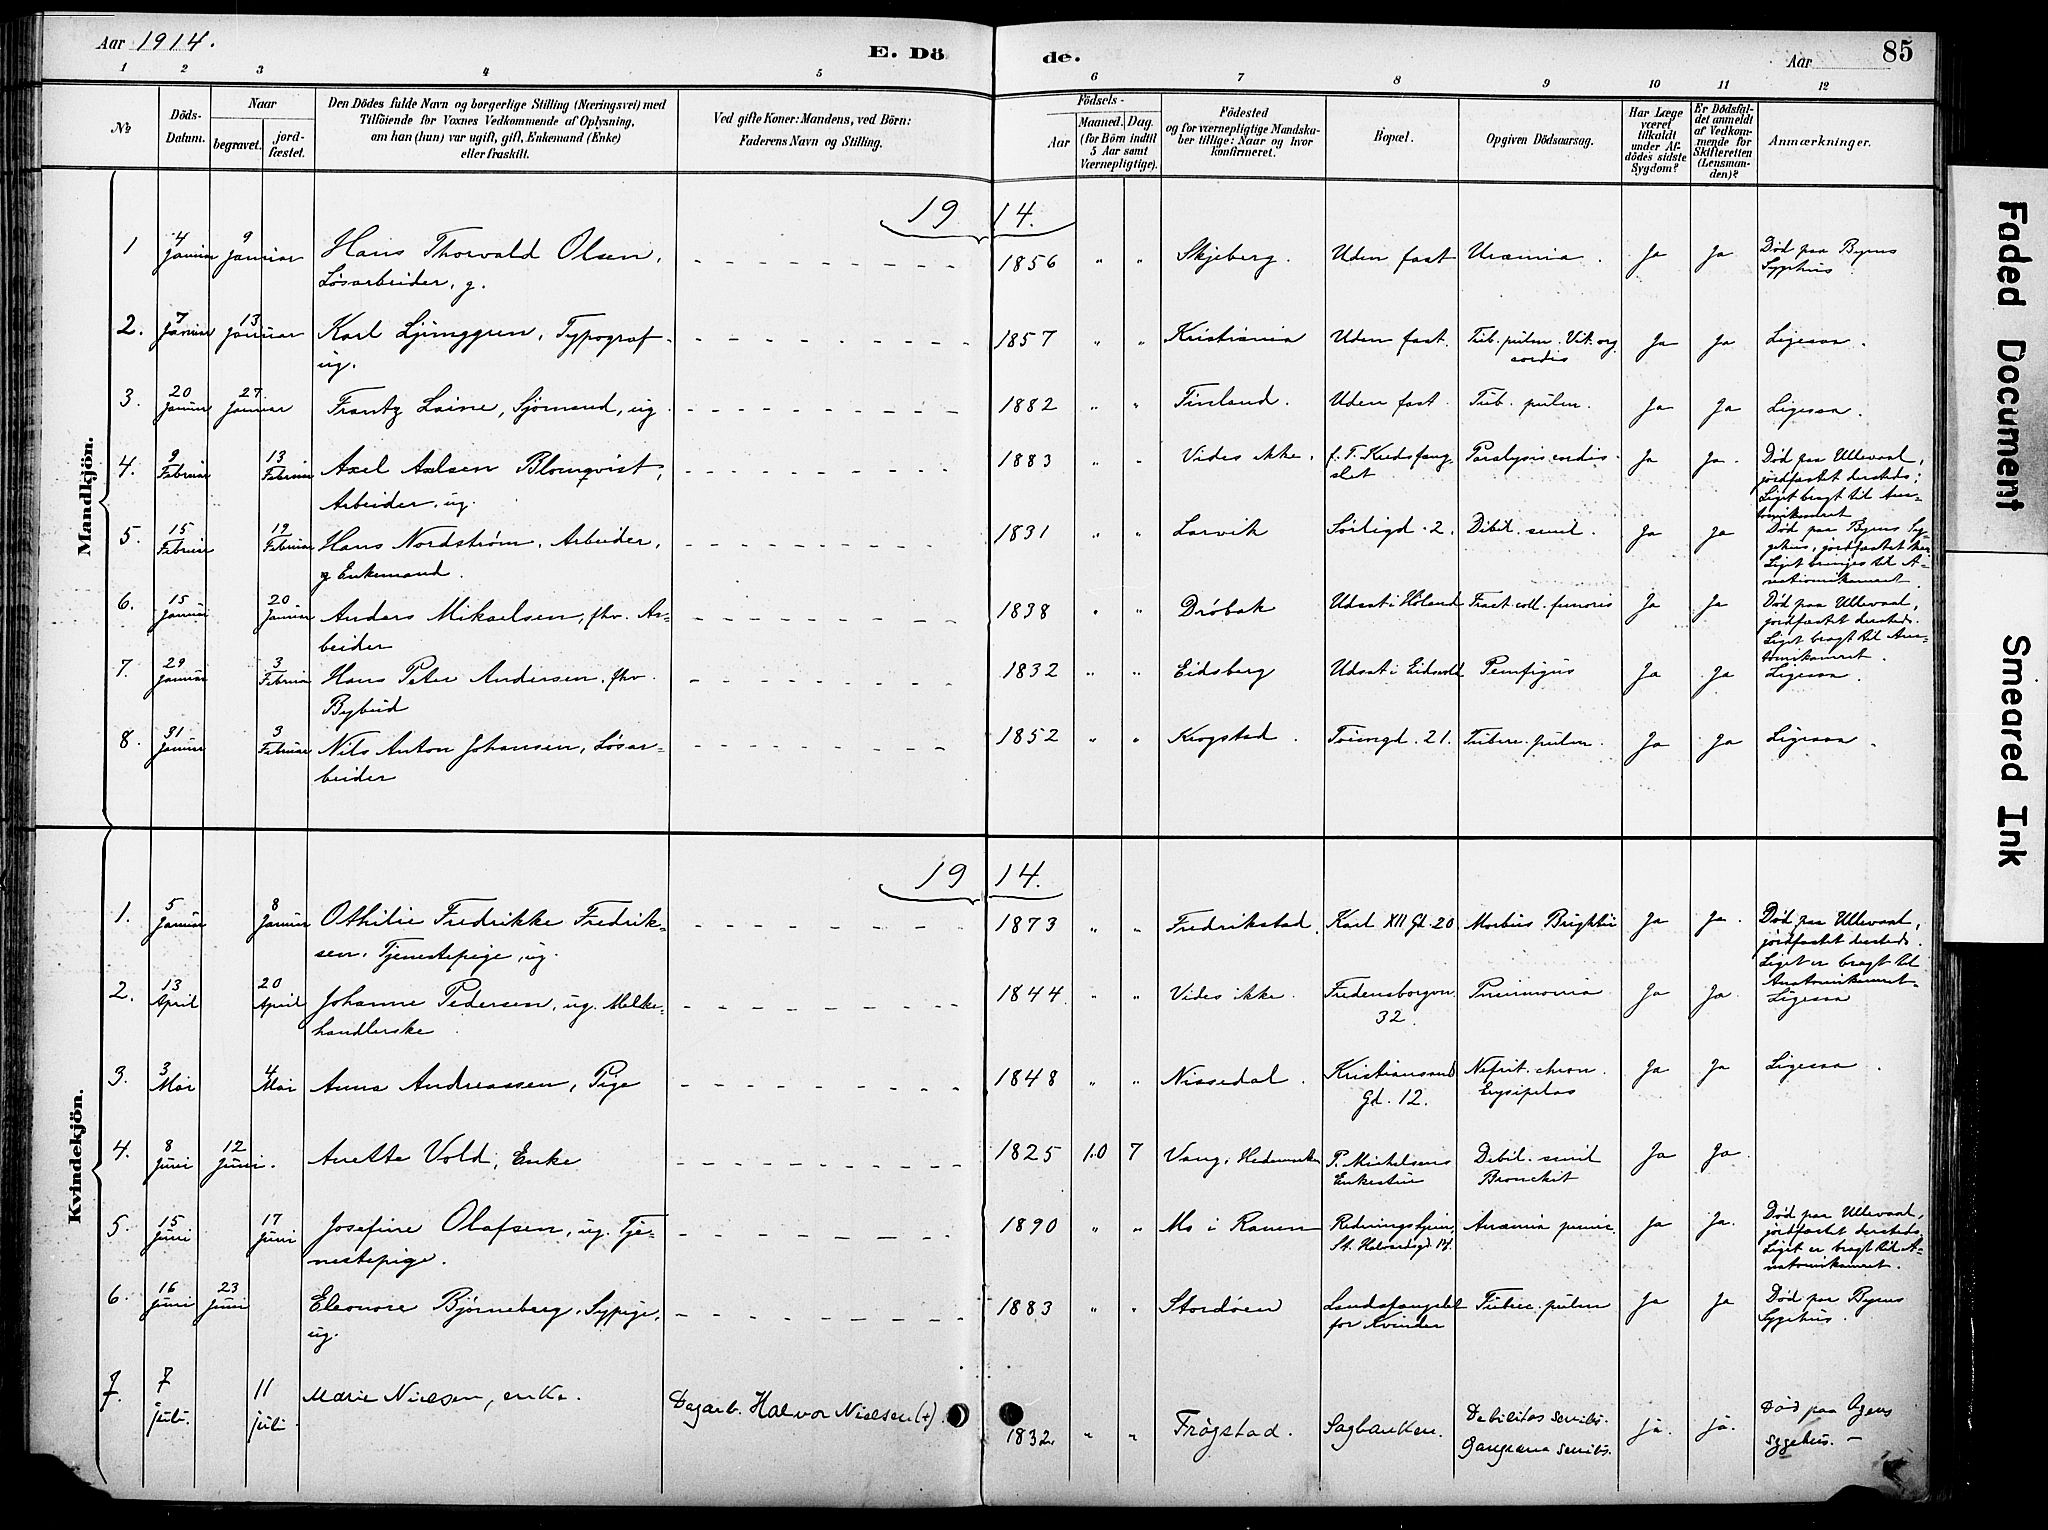 Aar 1914. E. Dö de. Aar 85
1 2 3 4 5 6 7 8 9 10 11 12
№
Döds-
Datum.
Naar
begravet.
jord-
fæstet.
Den Dödes fulde Navn og borgerlige Stilling (Næringsvei) med
Tilföiende for Voxnes Vedkommende af Oplysning,
om han (hun) var ugift, gift, Enkemand (Enke)
eller fraskilt.
Ved gifte Koner: Mandens, ved Börn:
Faderens Navn og Stilling.
Födsels-
Aar
Maaned. Dag.
(for Börn indtil
5 Aar samt
Værnepligtige).
Födested
og for værnepligtige Mandska-
ber tillige: Naar og hvor
konfirmeret.
Bopæl.
Opgiven Dödsaarsag.
Har Læge
været
tilkaldt
under Af-
dödes sidste
Sygdom?
Er Dödsfal-
det anmeldt
af Vedkom-
mende for
Skifteretten
(Lensman-
den)?
Anmærkninger.
Mandkjön.
19 14.
1 4 Januar 9 Januar Hans Thorvald Olsen, 1856 " " Skjeberg. Uden fast Uræmia. Ja Ja Død paa Byens
Løsarbeider, g. Sygehus
2. 7 Januar 13 Januar Karl Ljunggren, Typograf 1857 " " Kristiania Uden fast. Tub. pulm. Vit. org. Ja Ja Ligesaa.
ug. cordis
3. 20 Januar 27 Januar Frantz Laine, Sjömand, ug. 1882 " " Finland. Uden fast. Tub. pulm. Ja Ja Ligesaa.
4. 9 Februar 13 Februar Axel Axlsen Blomqvist, 1883 " " Vides ikke. f. T. Kredsfæng- Paralysis cordis. Ja Ja. Død paa Ullevaal,
Arbeider, ug. slet jordfæstet dersteds;
Liget bragt til Ana-
tomikamret
5. 15 Februar 19 Februar Hans Nordström, Arbeider, 1831 " " Larvik Sørligd. 2. Debil. senil. Ja Ja Død paa Byens Sy-
g Enkemand. gehus, jordfæstet her.
Liget bringes til A-
natomikamret.
6. 15 Januar 20 Januar Anders Mikaelsen, fhv. Ar- 1838 " " Dröbak Udsat i Höland Fract. coll. femoris Ja Ja Død paa Ullevaal,
beider jordfæstet dersteds.
Liget bragt til Ana-
tomikamret.
7. 29 Januar 3 Februar Hans Peter Andersen, fhv. 1832 " " Eidsberg Udsat i Eidsvold Pemfigus Ja Ja Ligesaa.
Bybud
8. 31 Januar 3 Februar Nils Anton Johansen, Løsar- 1852 " " Krogstad. Tøiengd. 21. Tuberc. pulm. Ja Ja Ligesaa.
beider
Kvindekjön.
19 14.
1. 5 Januar 8 Januar Othilie Fredrikke Fredrik- 1873 " " Fredrikstad. Karl XII Gd. 20 Morbus Brightii Ja Ja. Død paa Ullevaal,
sen, Tjenestepige, ug. jordfæstet dersteds.
Liget er bragt til
Anatomikamret.
2. 13 April 20 April Johanne Pedersen, ug. Melke- 1844 " " Vides ikke. Fredensborgvn. Pneumonia Ja Ja. Ligesaa
handlerske 32.
3. 3 Mai 4 Mai Anna Andreassen, Pige 1848 " " Nissedal. Kristiansund Nefrit. chron. Ja Ja Ligesaa.
Gd. 12. Erysipelas
4. 8 Juni 12 Juni. Anette Vold, Enke 1825 10 7 Vang, Hedemarken P. Michelsens Debil. senil Ja Ja.
Enkestue Bronchit
5. 15 Juni 17 Juni Josefine Olafsen, ug. Tje- 1890 " " Mo i Ranen Redningshjem, Anæmia pernic. Ja Ja. Død paa Ullevaal,
nestepige. St. Halvardsgd. jordfæstet dersteds.
Liget er bragt til A-
natomikamret.
6. 16 Juni 23 Juni Eleonore Björneberg, Sypige, 1883 " " Stordöen Landsfængslet Tuberc. pulm Ja Ja Død paa Byens
ug. for Kvinder Sygehus.
7. 7 juli. 11 juli. Marie Nielsen, enke. Dagarb. Halvor Nielsen (+). 1832 " " Frögstad. Sagbanken. Debilitas senilis. ja. ja. Död paa Byens
Gangræna senilis. sygehus. —
Faded Document
Smeared Ink